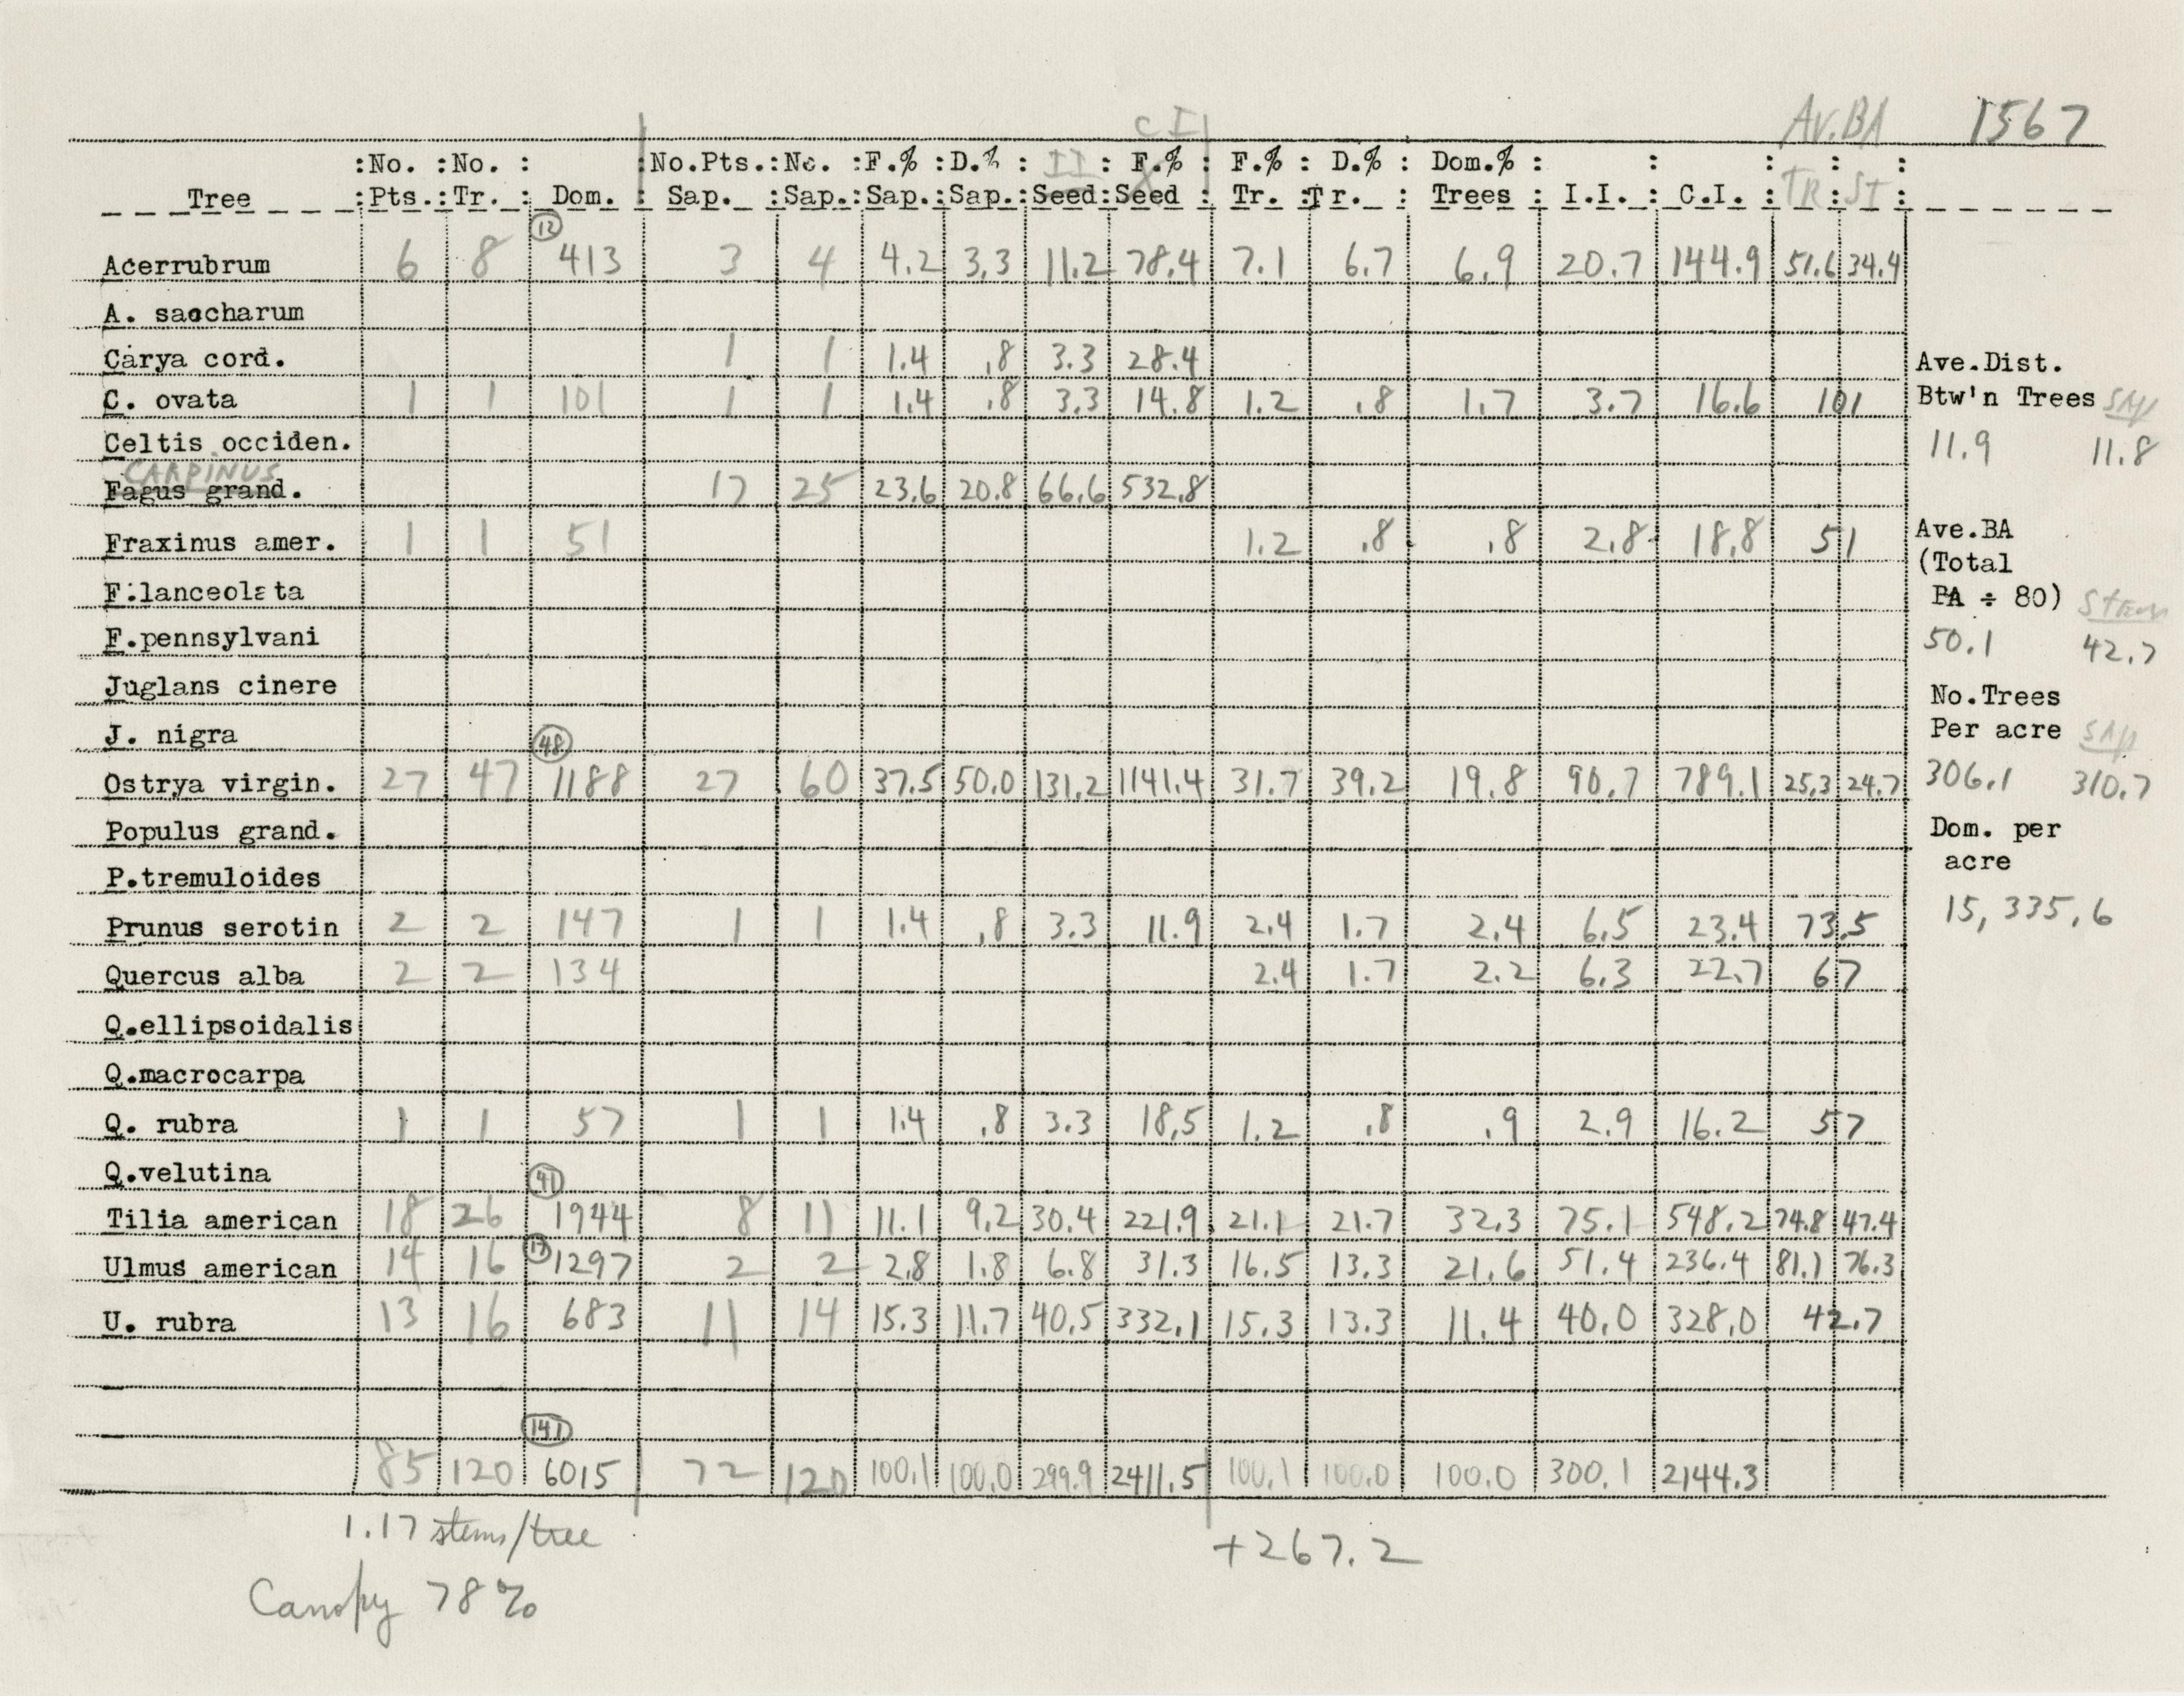 Av.BA 1567
CI
:No. :No. : :No.Pts.:No. :F.% :D.% : II : F.% : F.% : D.% : Dom.% : : : : :
Tree :Pts.:Tr. : Dom. : Sap. :Sap.:Sap.:Sap.:Seed:Seed : Tr. :Tr. : Trees : I.I. : C.I. : TR : ST :
12
Acerrubrum 6 8 413 3 4 4.2 3.3 11.2 78.4 7.1 6.7 6.9 20.7 144.9 51.6 34.4
A. saccharum
Carya cord. 1 1 1.4 .8 3.3 28.4
Ave.Dist.
C. ovata 1 1 101 1 1 1.4 .8 3.3 14.8 1.2 .8 1.7 3.7 16.6 101
Btw'n Trees SAP
Celtis occiden.
11.9 11.8
CARPINUS
Fagus grand. 17 25 23.6 20.8 66.6 532.8
Fraxinus amer. 1 1 51 1.2 .8 .8 2.8 18.8 51
Ave.BA
(Total
F.lanceolata
BA ÷ 80) Stems
F.pennsylvani
50.1 42.7
Juglans cinere
No.Trees
J. nigra
Per acre SAP
48
Ostrya virgin. 27 47 1188 27 60 37.5 50.0 131.2 1141.4 31.7 39.2 19.8 90.7 789.1 25.3 24.7
306.1 310.7
Populus grand.
Dom. per
acre
P.tremuloides
15,335.6
Prunus serotin 2 2 147 1 1 1.4 .8 3.3 11.9 2.4 1.7 2.4 6.5 23.4 73.5
Quercus alba 2 2 134 2.4 1.7 2.2 6.3 22.7 67
Q.ellipsoidalis
Q.macrocarpa
Q. rubra 1 1 57 1 1 1.4 .8 3.3 18.5 1.2 .8 .9 2.9 16.2 57
Q.velutina
41
Tilia american 18 26 1944 8 11 11.1 9.2 30.4 221.9 21.1 21.7 32.3 75.1 548.2 74.8 47.4
17
Ulmus american 14 16 1297 2 2 2.8 1.8 6.8 31.3 16.5 13.3 21.6 51.4 236.4 81.1 76.3
U. rubra 13 16 683 11 14 15.3 11.7 40.5 332.1 15.3 13.3 11.4 40.0 328.0 42.7
141
85 120 6015 72 120 100.1 100.0 299.9 2411.5 100.1 100.0 100.0 300.1 2144.3
1.17 stems/tree
+267.2
Canopy 78%